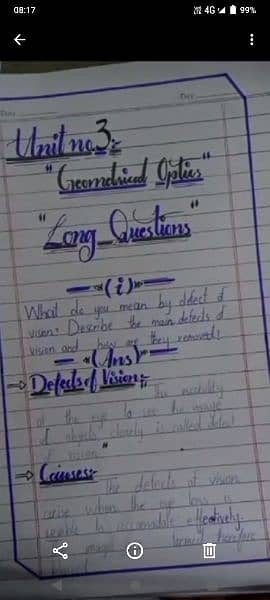 08:17
4G 99%
Unit no.3:-
"Geometrical Optics"
"Long Questions"
(i)
What do you mean by defect of
vison? Describe the main defects of
vision and how are they removed?
(Ans)
Defects of Vision:- The inability
of the eye to see the image
of objects clearly is called defect
of vision"
Causes:-
The defects of vision
when the eye lens is
to accomodate effectively.
The formed therefore